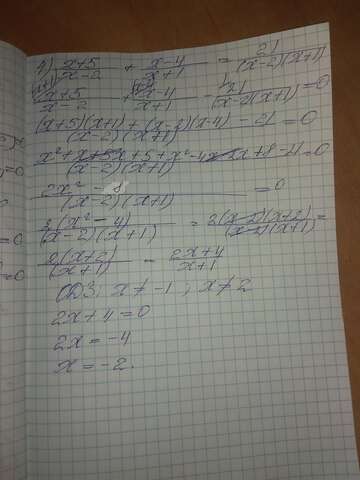 4) (x+5)/(x-2) + (x-4)/(x+1) = 21/((x-2)(x+1))
(x+5)/(x-2) + (x-4)/(x+1) - 21/((x-2)(x+1)) = 0
((x+5)(x+1)+(x-2)(x-4)-21)/((x-2)(x+1)) = 0
(x²+x+5x+5+x²-4x-2x+8-21)/((x-2)(x+1)) = 0
(2x²-8)/((x-2)(x+1)) = 0
2(x²-4)/((x-2)(x+1)) = 2(x-2)(x+2)/((x-2)(x+1)) =
2(x+2)/(x+1) = (2x+4)/(x+1)
ОДЗ: x ≠ -1 ; x ≠ 2
2x+4=0
2x=-4
x=-2.